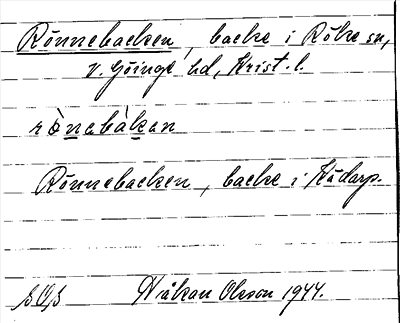 Rönnebacken, backe i Röke sn,
V. Göinge hd, Krist. l.
rònebàkan
Rönnebacken, backe i Hådarp.
Håkan Olsson 1944.